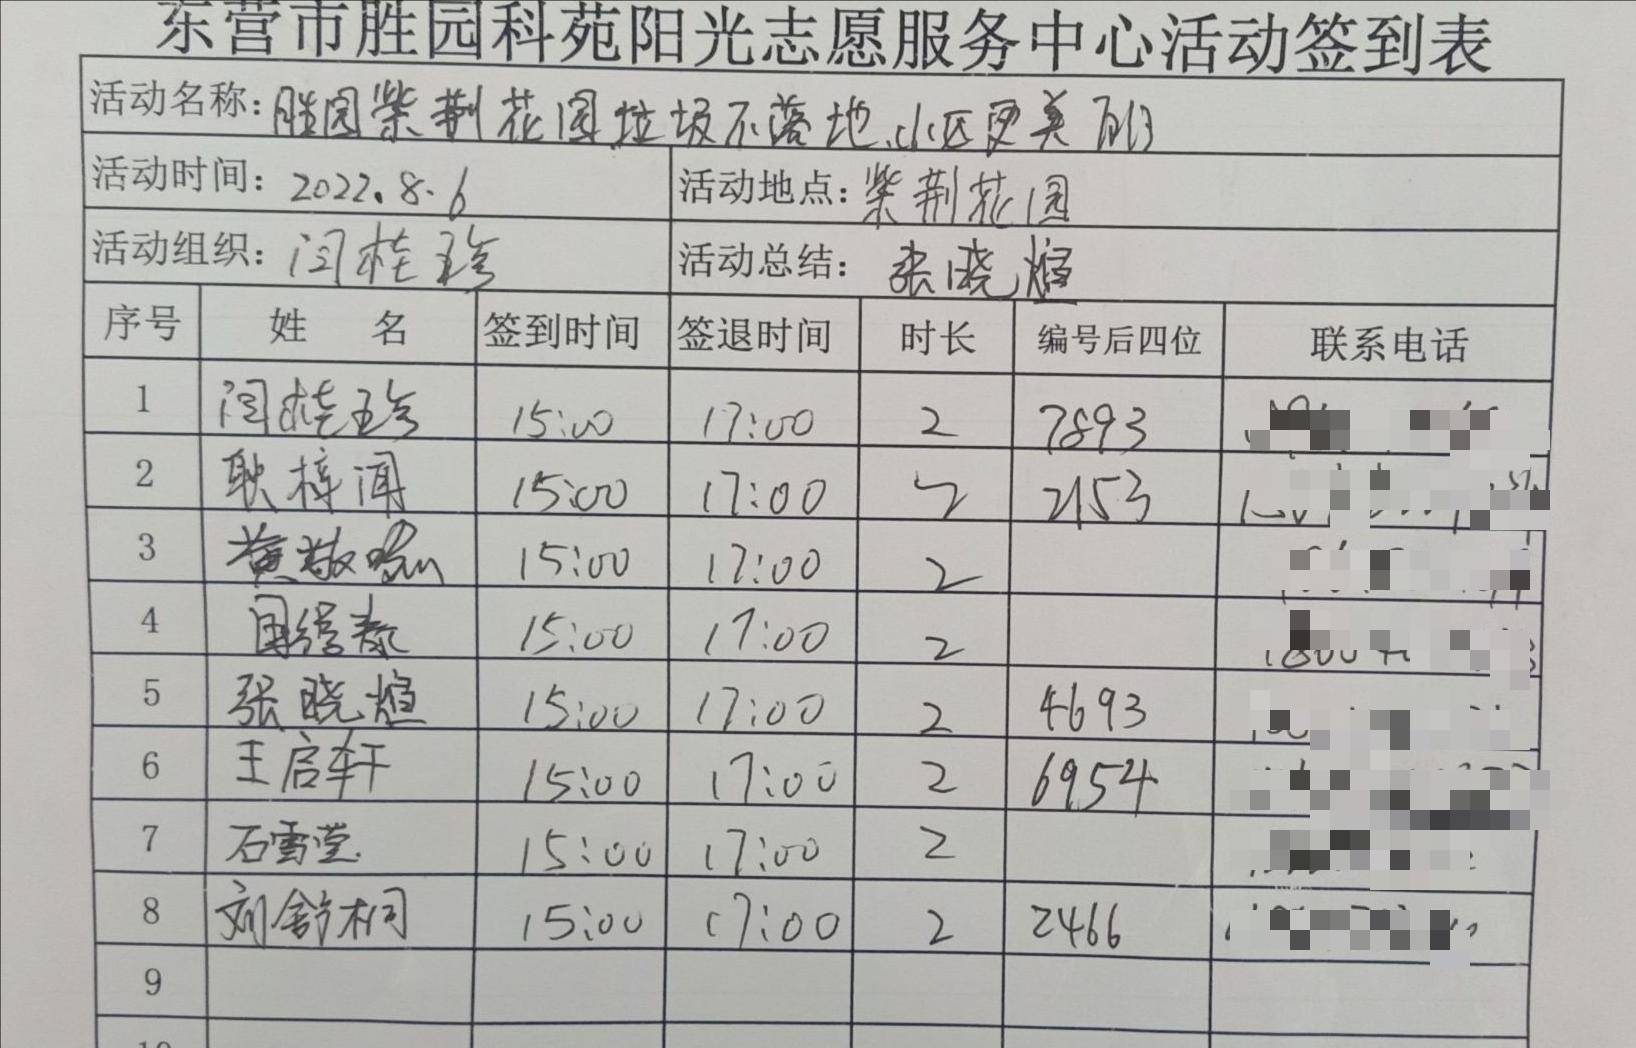 东营市胜园科苑阳光志愿服务中心活动签到表
活动名称: 胜园紫荆花园垃圾不落地,小区更美丽
活动时间: 2022.8.6 活动地点: 紫荆花园
活动组织: 闫桂珍 活动总结: 张晓煊
序号 姓 名 签到时间 签退时间 时长 编号后四位 联系电话
1 闫桂珍 15:00 17:00 2 7893
2 耿梓闻 15:00 17:00 2 2153
3 黄敬 15:00 17:00 2
4 15:00 17:00 2
5 张晓煊 15:00 17:00 2 4693
6 王启轩 15:00 17:00 2 6954
7 石雪莹 15:00 17:00 2
8 刘舒桐 15:00 17:00 2 2466
9
10